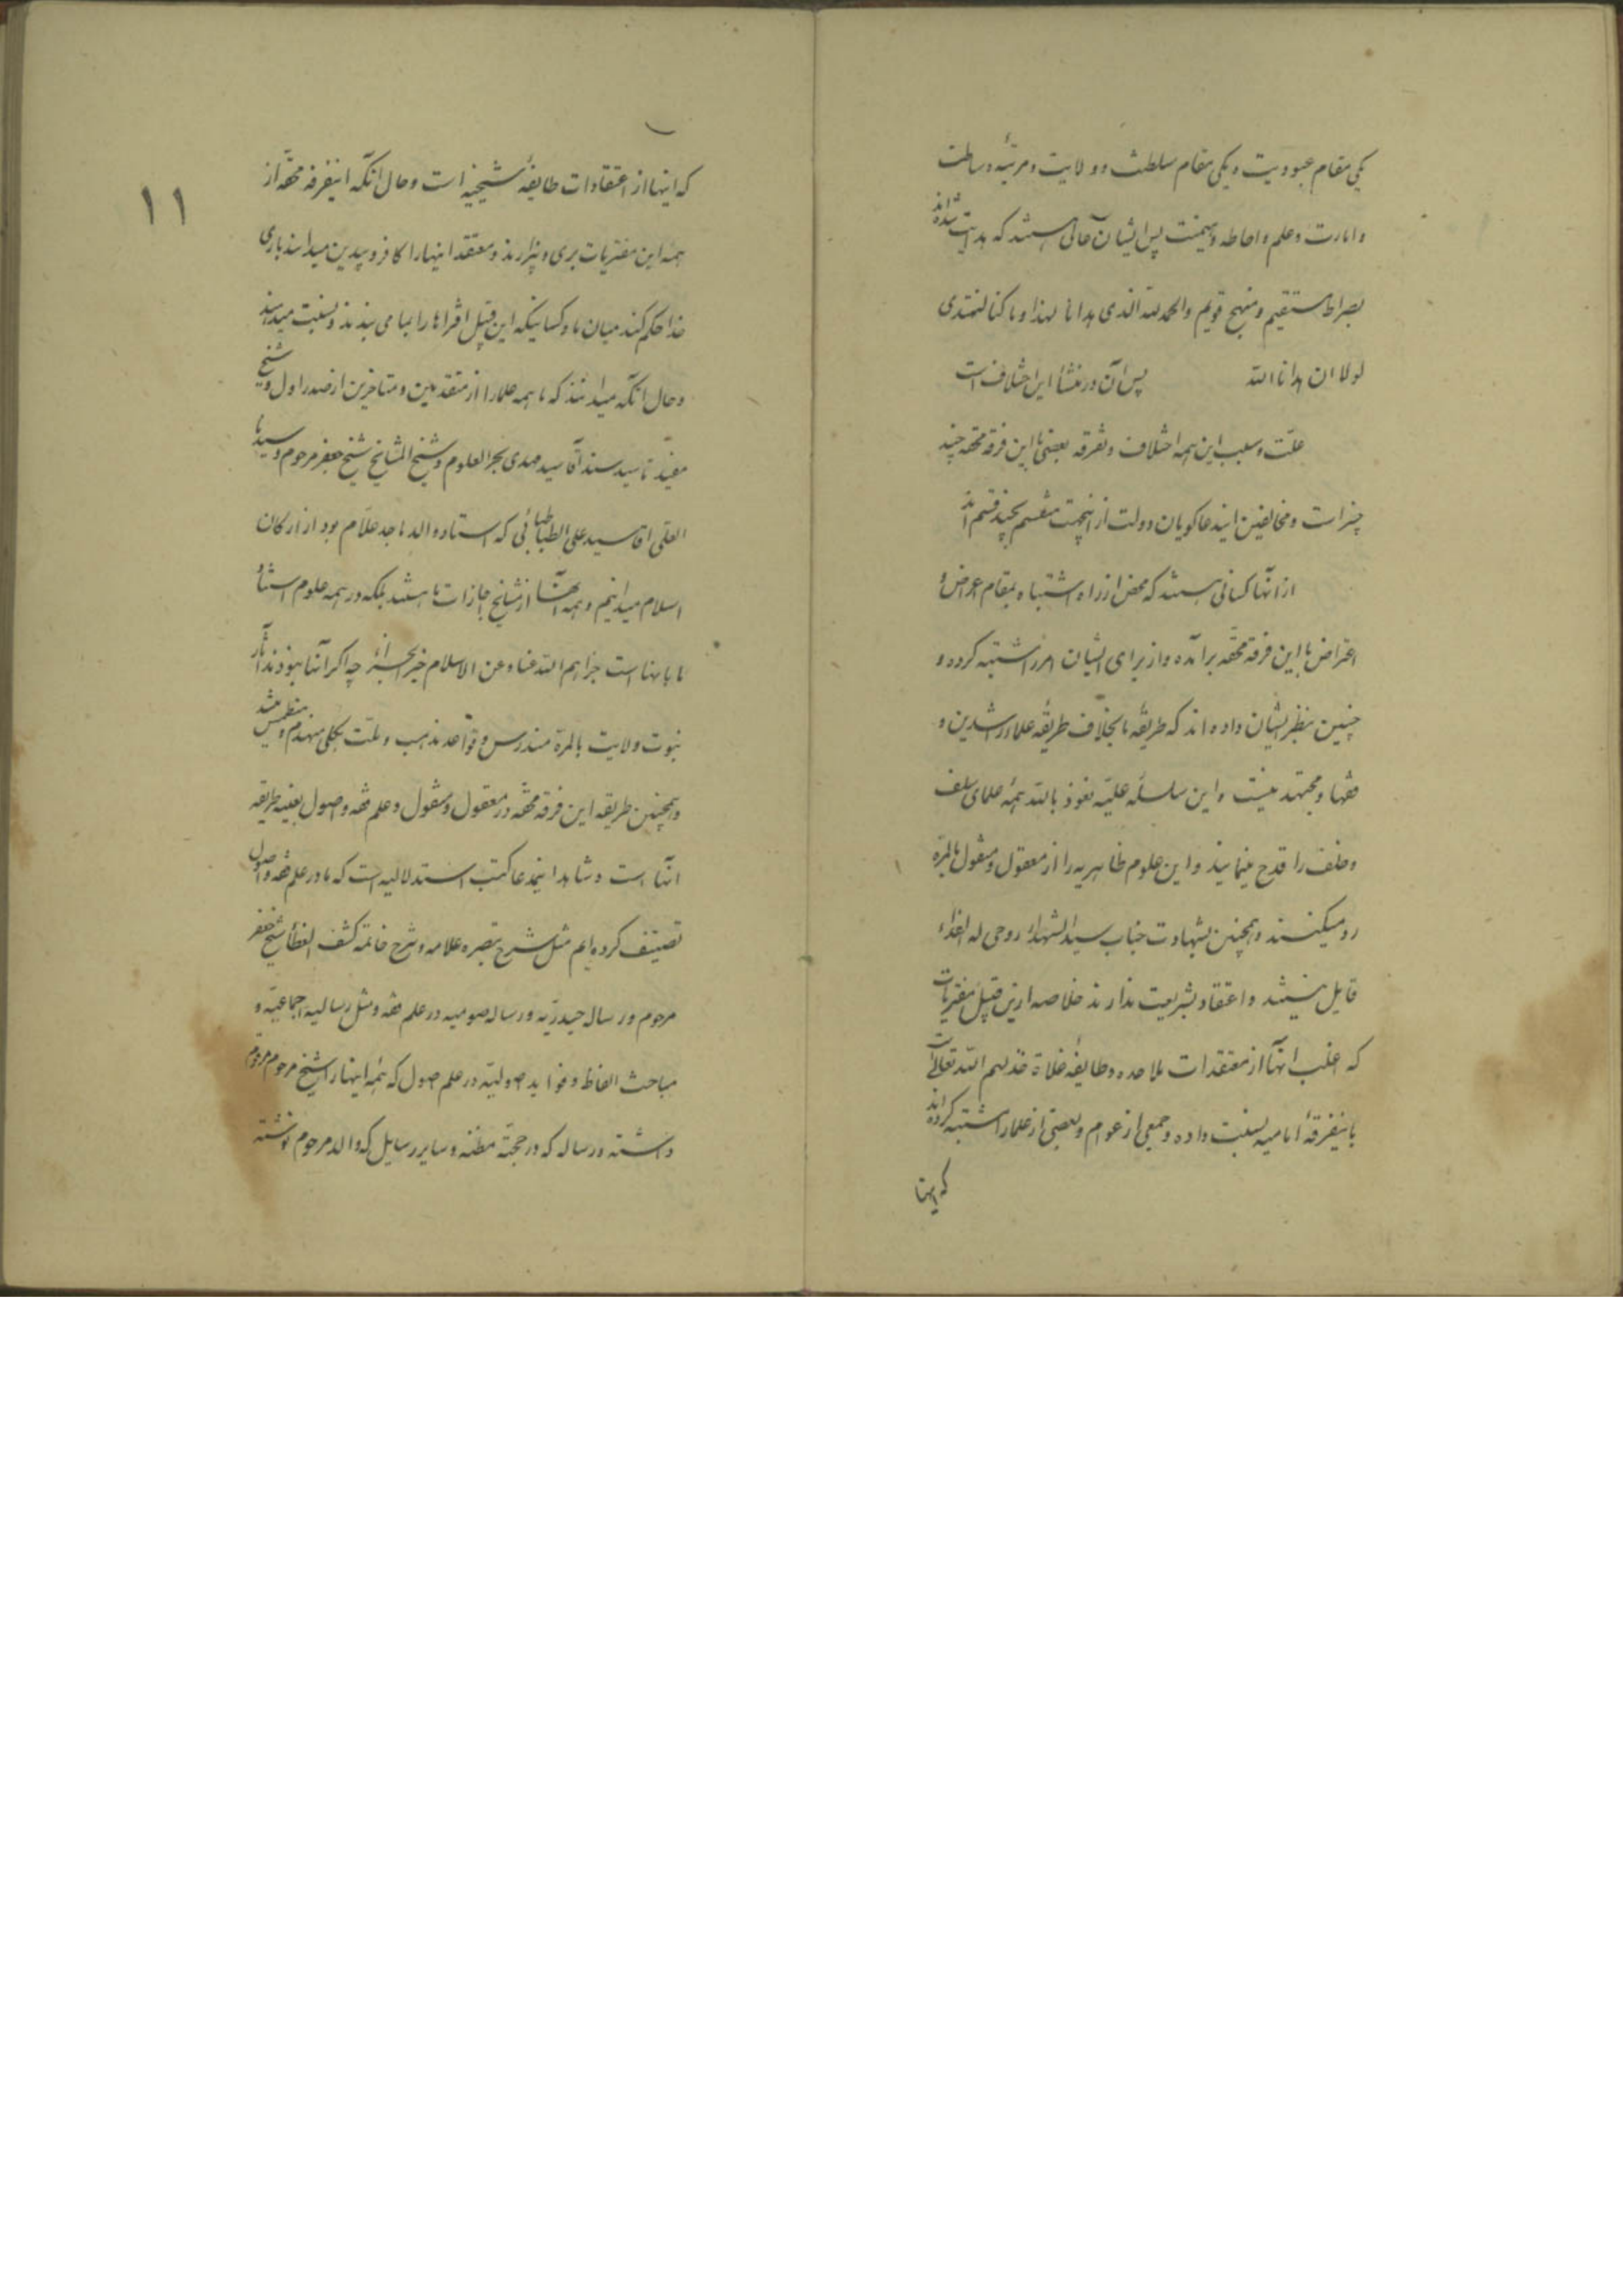 یکی مقام عبودیت و یکی مقام سلطنت و ولایت و مرتبهٔ وساطت
و امارت و علم و احاطه و هیمنت پس ایشان حالی هستند که هدایت شده‌اند
بصراط مستقیم و منهج قویم والحمد لله الذی هدانا لهذا و ما کنا لنهتدی
لولا ان هدانا الله پس از آن در منشأ این اختلاف است
علت و سبب این همه اختلاف و تفرقه بعضی با این فرقه محقه چند
چیز است و مخالفین ایندعاکویان دولت از اینجهت منقسم بچند قسم‌اند
از آنها کسانی هستند که محض از راه اشتباه بمقام اعراض و
اعتراض با این فرقه محقه برآمده و از برای ایشان امر را مشتبه کرده و
چنین بنظر ایشان داده‌اند که طریقهٔ ما بخلاف طریقهٔ علماء راشدین و
فقها و مجتهدین است و این سلسلهٔ علیّه نعوذ بالله همهٔ علمای سلف
و خلف را قدح مینمایند و این علوم ظاهریه را از معقول و منقول بالمرة
رد میکنند و همچنین بشهادت جناب سید الشهداء روحی له الفداء
قایل نیستند و اعتقاد بشریعت ندارند خلاصه ازین قبیل مفتریات
که اغلب انها از معتقدات ملاحده و طایفهٔ غلاة خذلهم الله تعالی است
باینفرقهٔ امامیه نسبت داده و جمعی از عوام و بعضی از علما را مشتبه کرده‌اند
که اینها
۱۱
که اینها از اعتقادات طایفهٔ شیخیه است و حال آنکه اینفرقه محقه از
همه این مفتریات بری و بیزارند و معتقد اینها را کافر و بیدین میدانند باری
خدا حکم کند میان ما و کسانیکه این قبیل افتراها را بما می بندند و نسبت میدهند
و حال آنکه میدانند که ما همه علما را از متقدمین و متاخرین از صدر اول و شیخ
مفید تا سید سند آقا سید مهدی بحر العلوم و شیخ المشایخ شیخ جعفر مرحوم و سیدنا
العلی اقا سید علی الطباطبائی که استاد والد ماجد علّام بود از ارکان
اسلام میدانیم و همه آنها از مشایخ اجازات ما هستند بلکه در همه علوم استناد
ما بانهاست جزاهم الله عنا و عن الاسلام خیر الجزاء چه اگر آنها نبودند آثار
نبوت و ولایت بالمرة مندرس و قواعد مذهب و ملت بکلی منهدم و منطمس میشد
و همچنین طریقه این فرقه محقه در معقول و منقول و علم فقه و اصول بعینه طریقه
آنها است و شاهد اینمدعا کتب استدلالیه است که ما در علم فقه و اصول
تصنیف کرده‌ایم مثل شرح تبصره علامه و شرح خاتمه کشف الغطاء شیخ جعفر
مرحوم و رساله حیدریّه و رساله صومیه در علم فقه و مثل رسالهٔ اجماعیّه و
مباحث الفاظ و فواید اصولیّه در علم اصول که همهٔ اینها را شیخ مرحوم مرقوم
داشته و رساله که در حجیّة مظنه و سایر رسایل که والد مرحوم نوشته